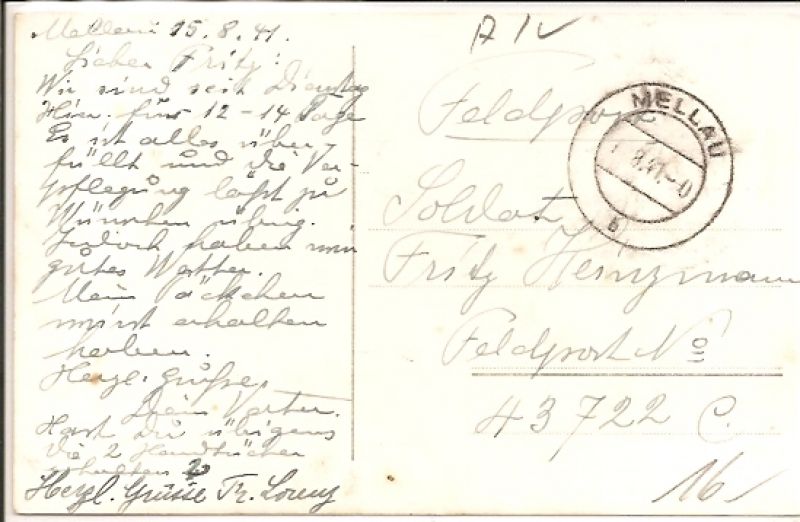 Mellau 15.8.41.
Lieber Fritz!
Wir sind seit Dienstag
hier für 12-14 Tage
Es ist alles über-
füllt und die Ver-
pflegung läßt zu
Wünschen übrig.
Jedoch haben wir
gutes Wetter.
Mein Päckchen
wirst erhalten
haben.
Herzl. Grüße,
Dein Vater.
Hast Du übrigens
die 2 Handtücher
erhalten?
Herzl. Grüsse Fr. Lorenz
A IV
Feldpost
MELLAU
41.-0
b
Soldat
Fritz Heinzmann
Feldpost No
43722 C.
16